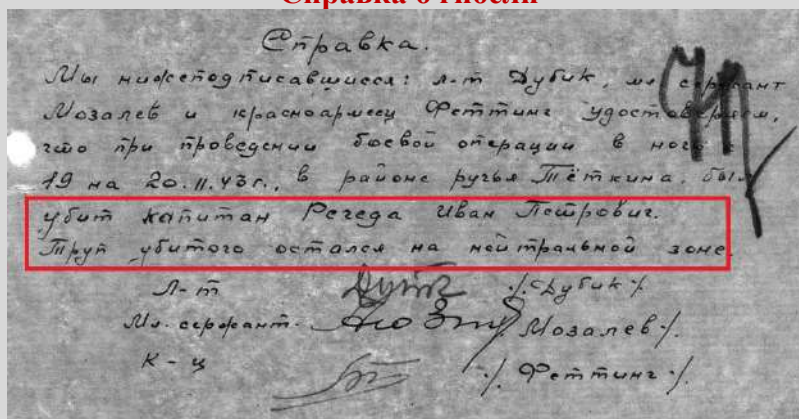 Справка.
Мы нижеподписавшиеся: л-т Дубик, мл сержант
Мозалев и красноармеец Феттинг удостоверяем,
что при проведении боевой операции в ночь с
19 на 20.11.43г., в районе ручья Тёткина, был
убит капитан Регеда Иван Петрович.
Труп убитого остался на нейтральной зоне.
Л-т /.Дубик./
Мл-сержант- /.Мозалев./
К-ц ./. Феттинг./